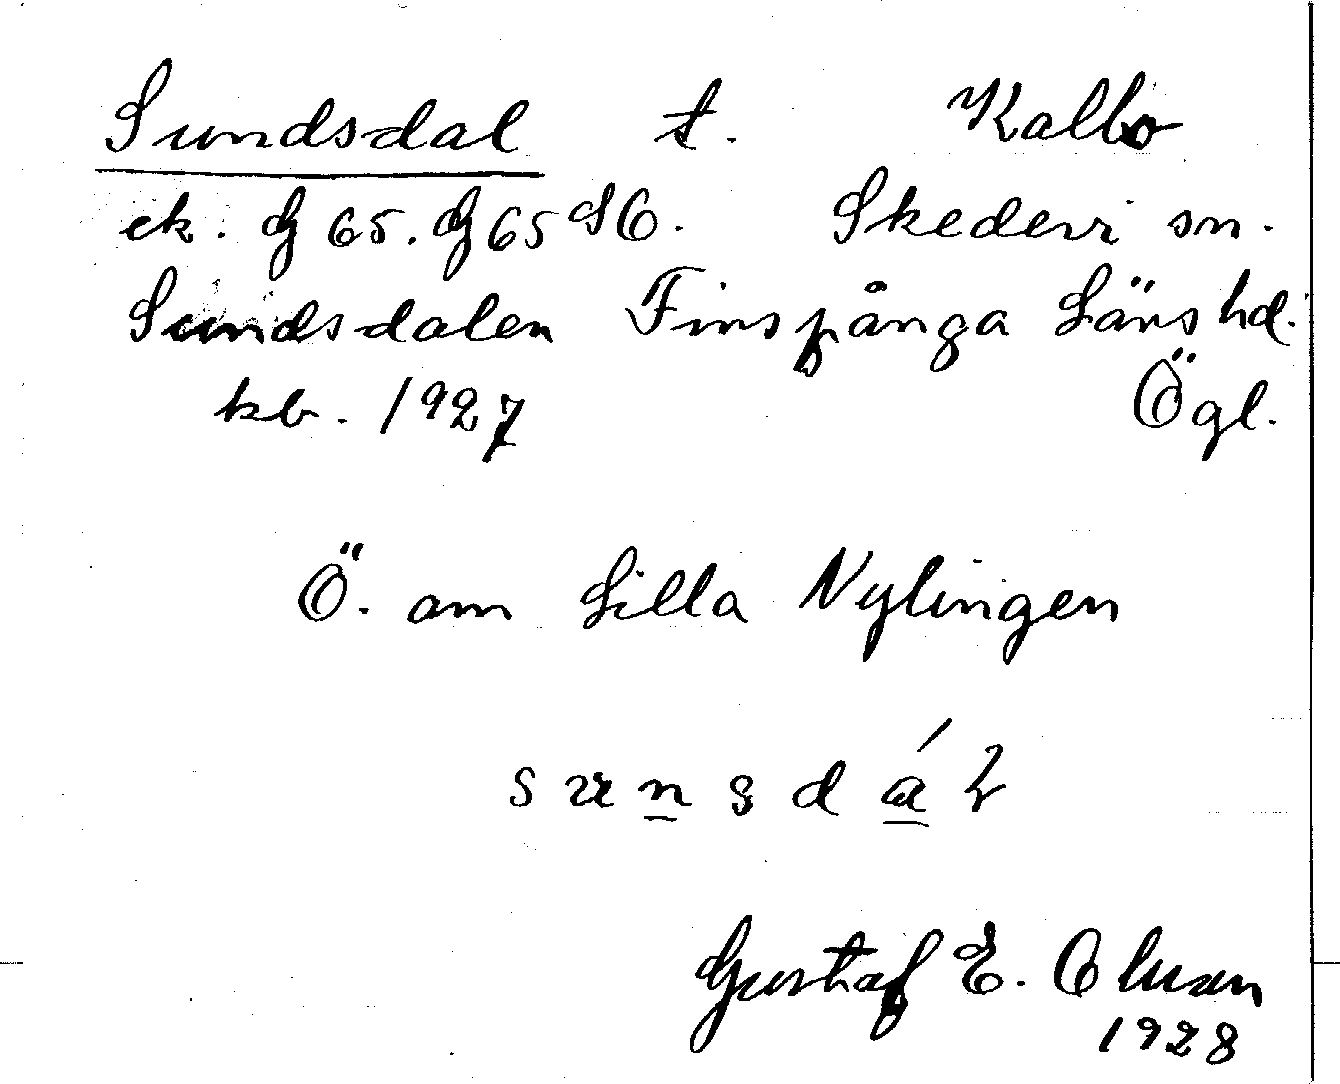 Sundsdal t. Kalbo
ek. G 65. G 65 SO. Skedevi sn.
Sundsdalen Finspånga Läns hd.
kb. 1927 Ögl.
Ö. om Lilla Nylingen
sunsdál
Gustaf E. Olsson
1928